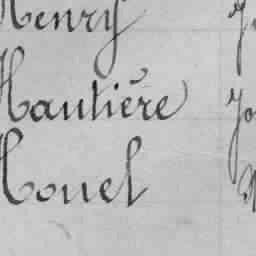 Henry
Hautière
Houel